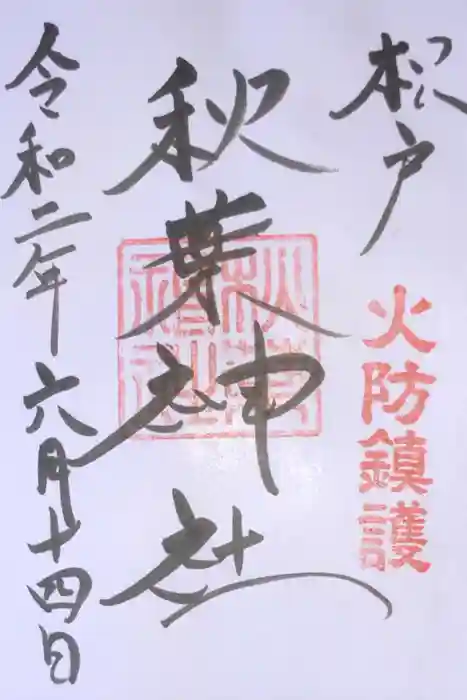 松戸
火防鎮護
秋葉神社
秋葉神社
令和二年六月十四日